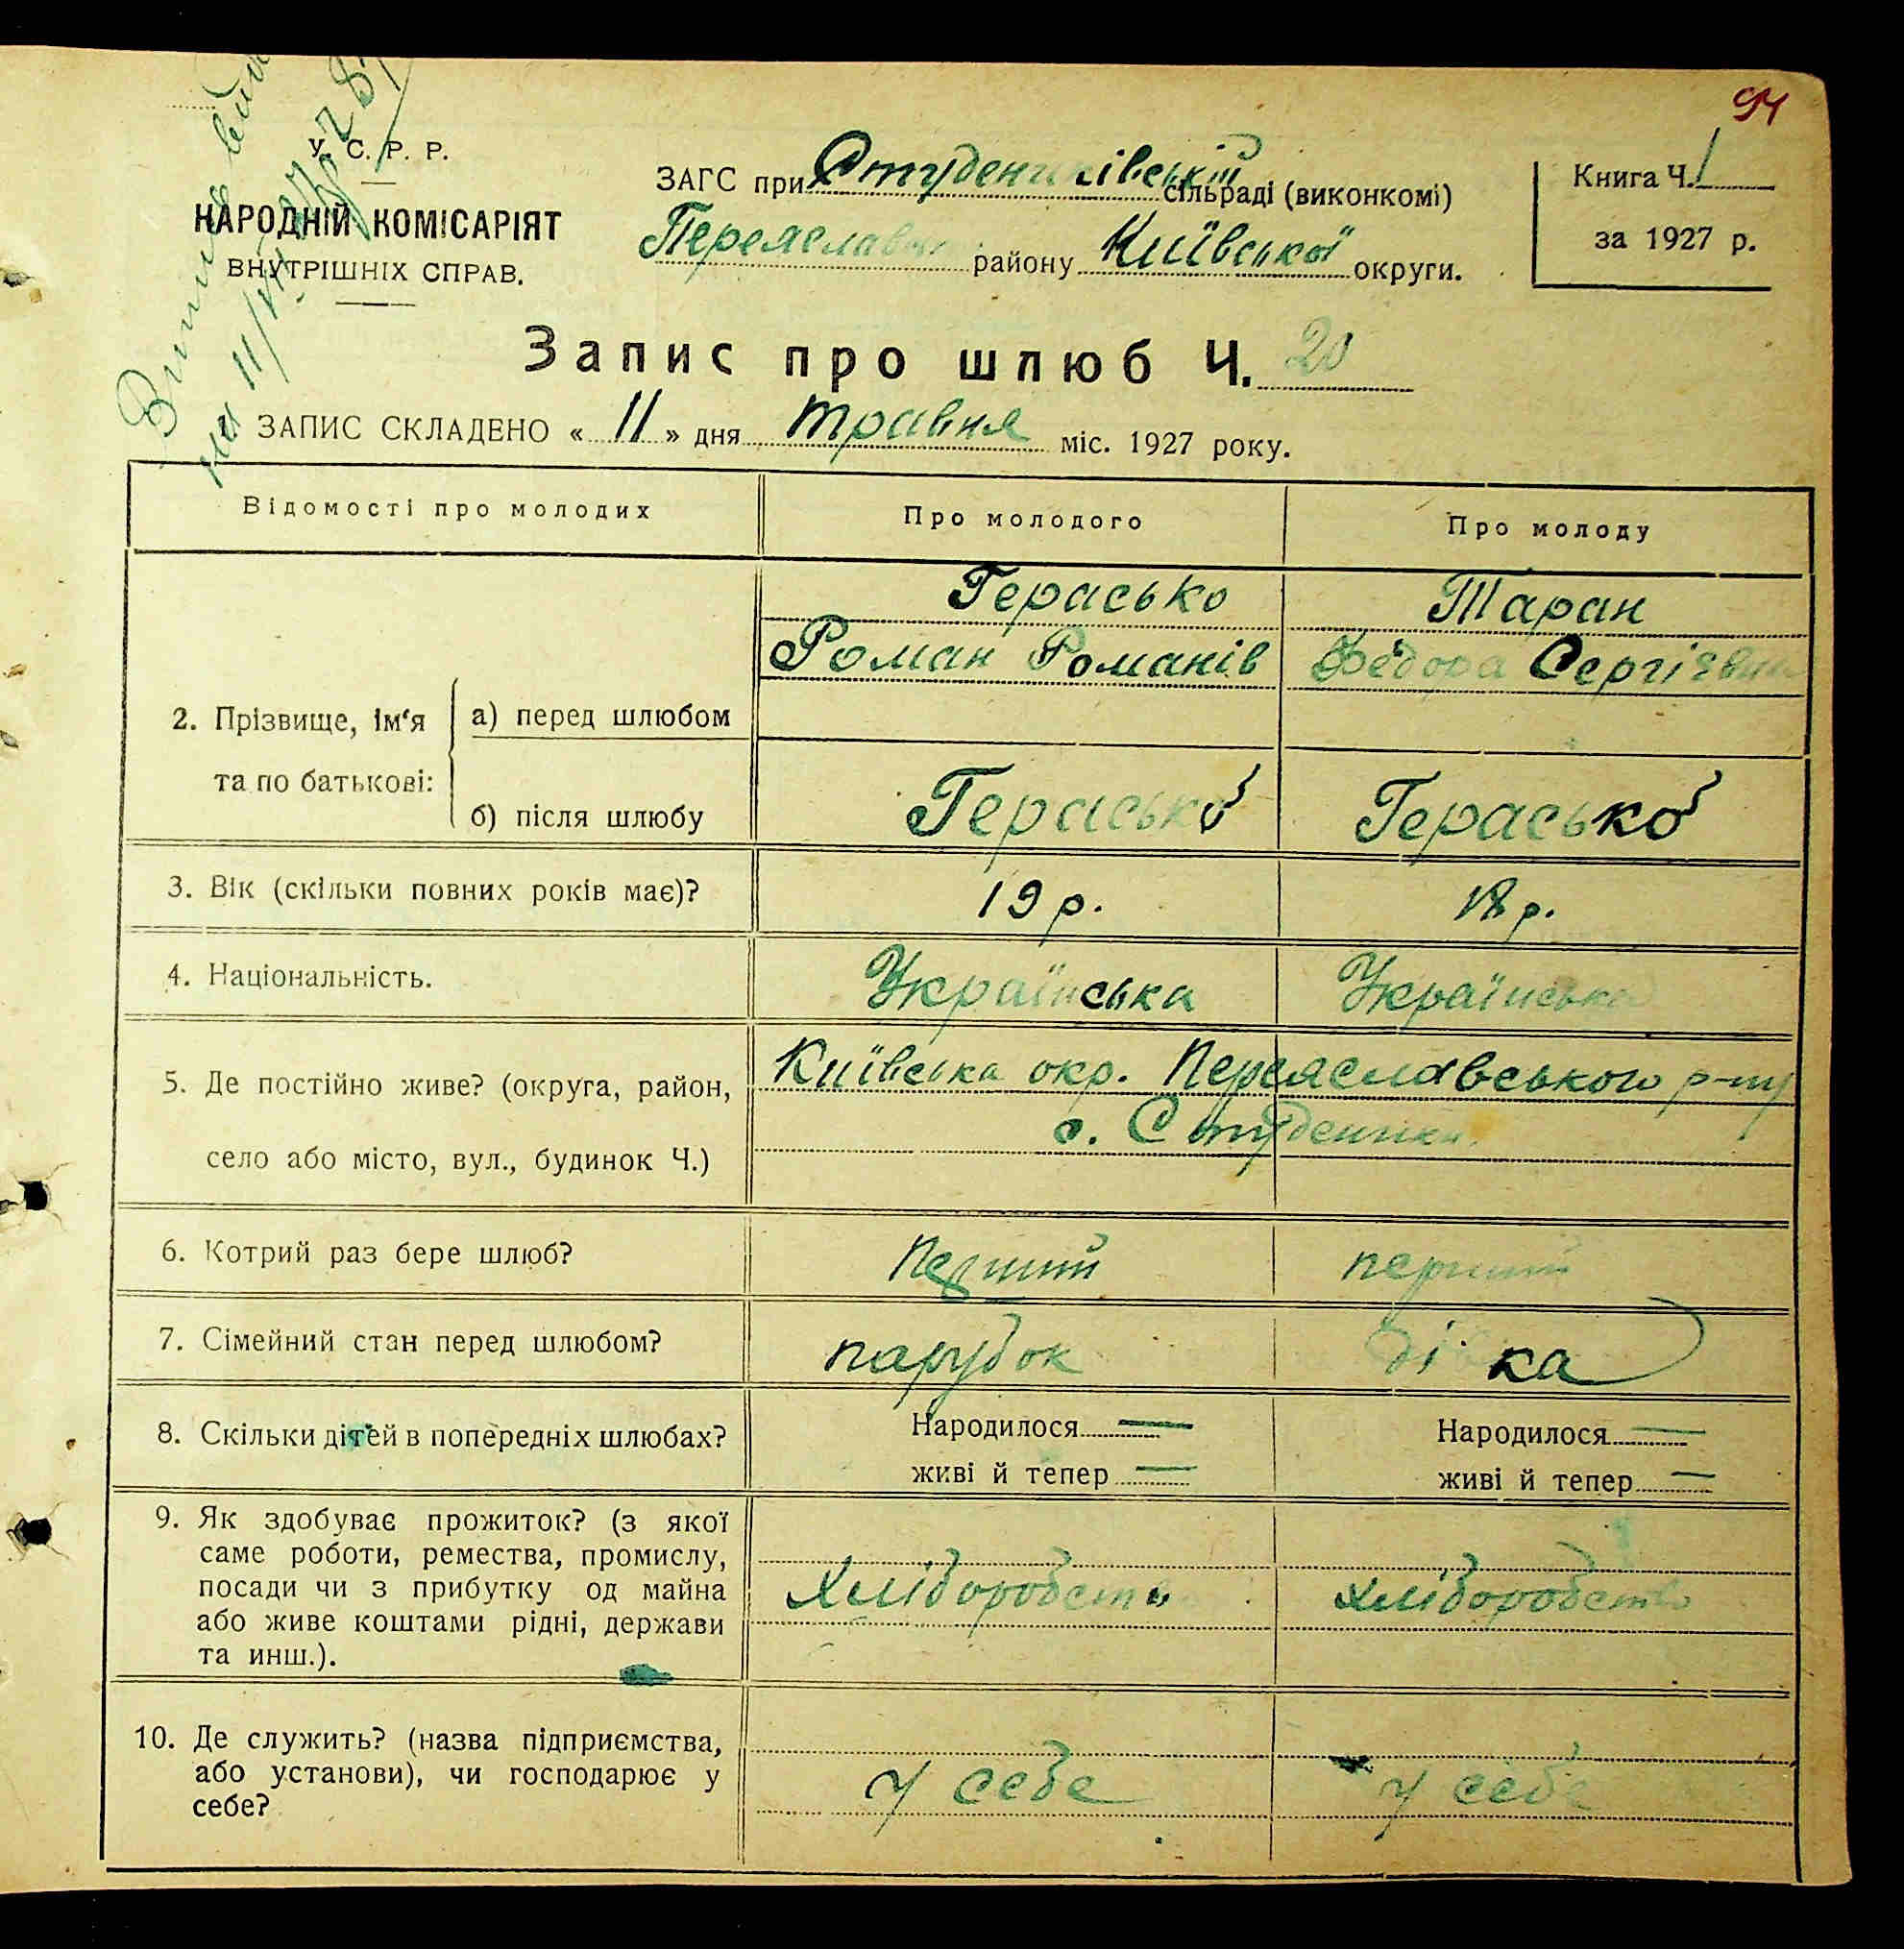 94
У. С. Р. Р.
НАРОДНІЙ КОМІСАРІЯТ
ВНУТРІШНІХ СПРАВ.
ЗАГС при Студениківській сільраді (виконкомі)
Переяславськ району Київської округи.
Книга Ч. 1
за 1927 р.
Запис про шлюб Ч. 20
1. ЗАПИС СКЛАДЕНО « 11 » дня травня міс. 1927 року.
Відомості про молодих
Про молодого
Про молоду
2. Прізвище, ім‘я та по батькові:
а) перед шлюбом
Герасько
Роман Романів
Таран
Федора Сергіївна
б) після шлюбу
Герасько
Герасько
3. Вік (скільки повних років має)?
19 р.
18 р.
4. Національність.
Українська
Українська
5. Де постійно живе? (округа, район,
село або місто, вул., будинок Ч.)
Київська окр. Переяславського р-ну
с. Студеники.
6. Котрий раз бере шлюб?
Перший
перший
7. Сімейний стан перед шлюбом?
парубок
дівка
8. Скільки дітей в попередніх шлюбах?
Народилося —
живі й тепер —
Народилося —
живі й тепер —
9. Як здобуває прожиток? (з якої
саме роботи, ремества, промислу,
посади чи з прибутку од майна
або живе коштами рідні, держави
та инш.).
Хліборобство
хліборобство
10. Де служить? (назва підприємства,
або установи), чи господарює у
себе?
у себе
у себе